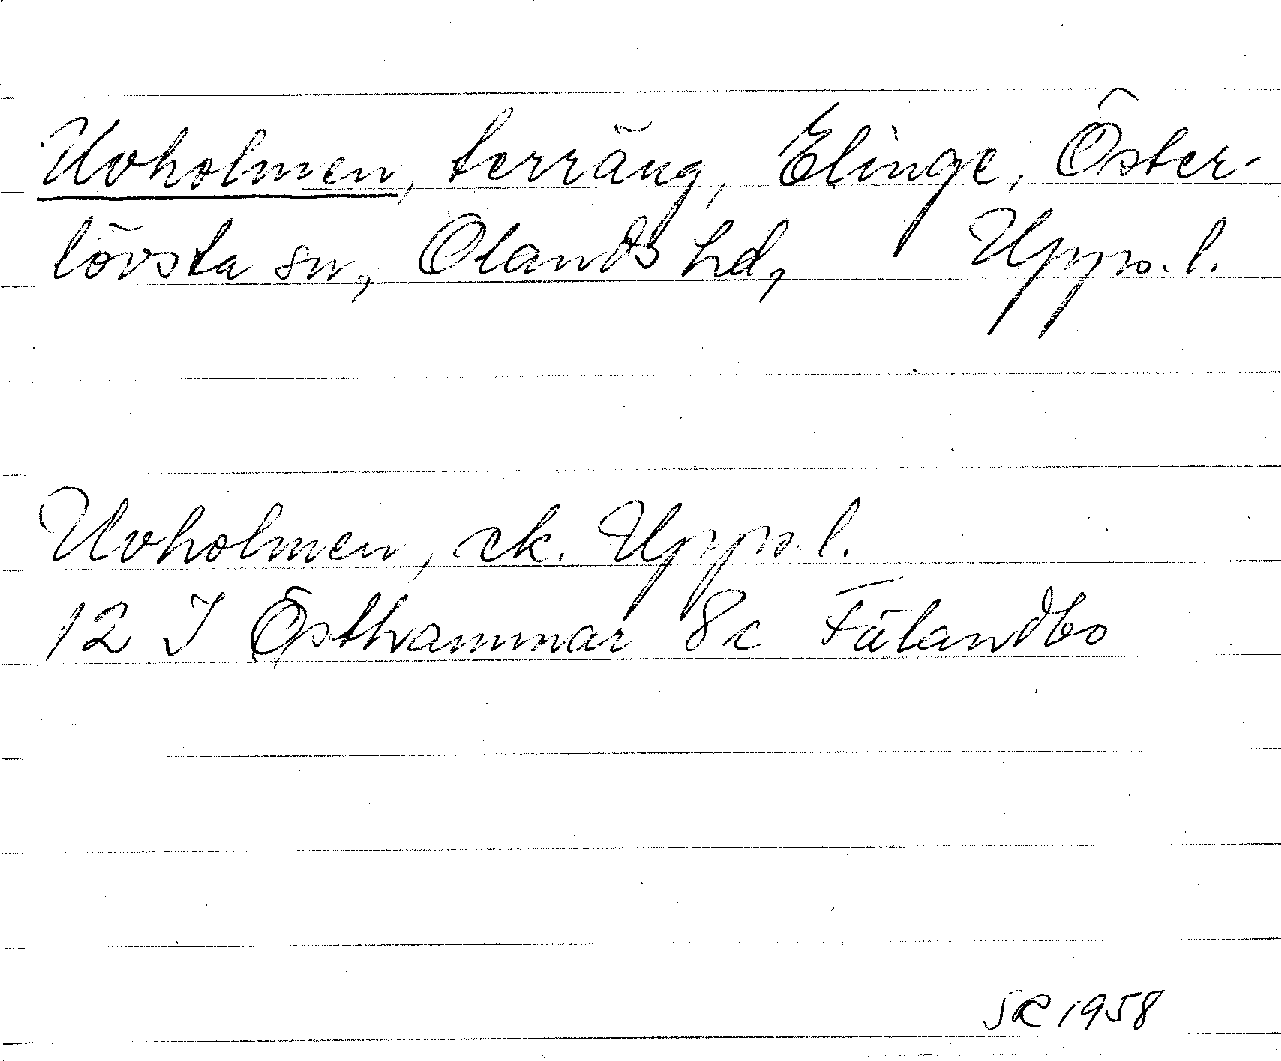 Uvholmen, terräng, Elinge, Öster-
lövsta sn, Olands hd, Upps. l.
Uvholmen, ek. Upps. l.
12 I Östhammar 8c Fälandbo
SR 1958